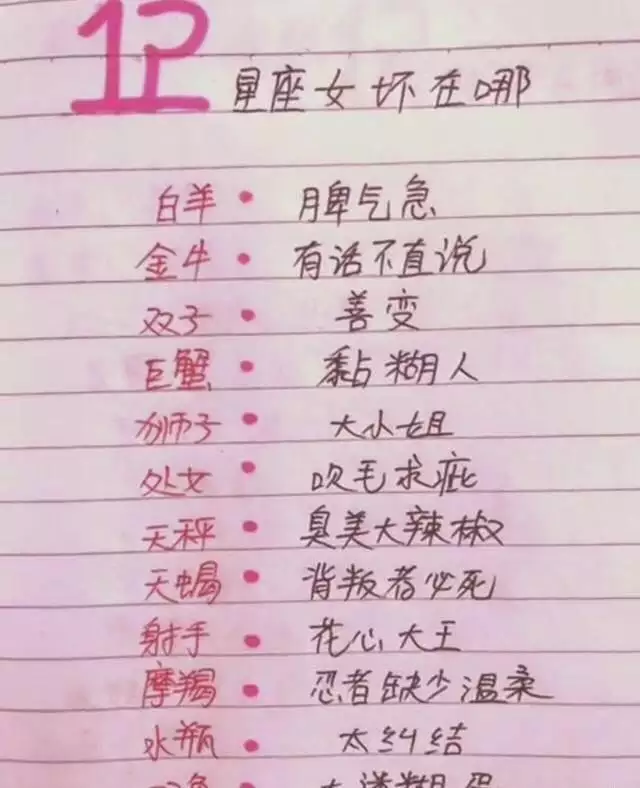 12 星座女坏在哪
白羊 • 脾气急
金牛 • 有话不直说
双子 • 善变
巨蟹 • 黏糊人
狮子 • 大小姐
处女 • 吹毛求疵
天秤 • 臭美大辣椒
天蝎 • 背叛者必死
射手 • 花心大王
摩羯 • 忍者缺少温柔
水瓶 • 太纠结